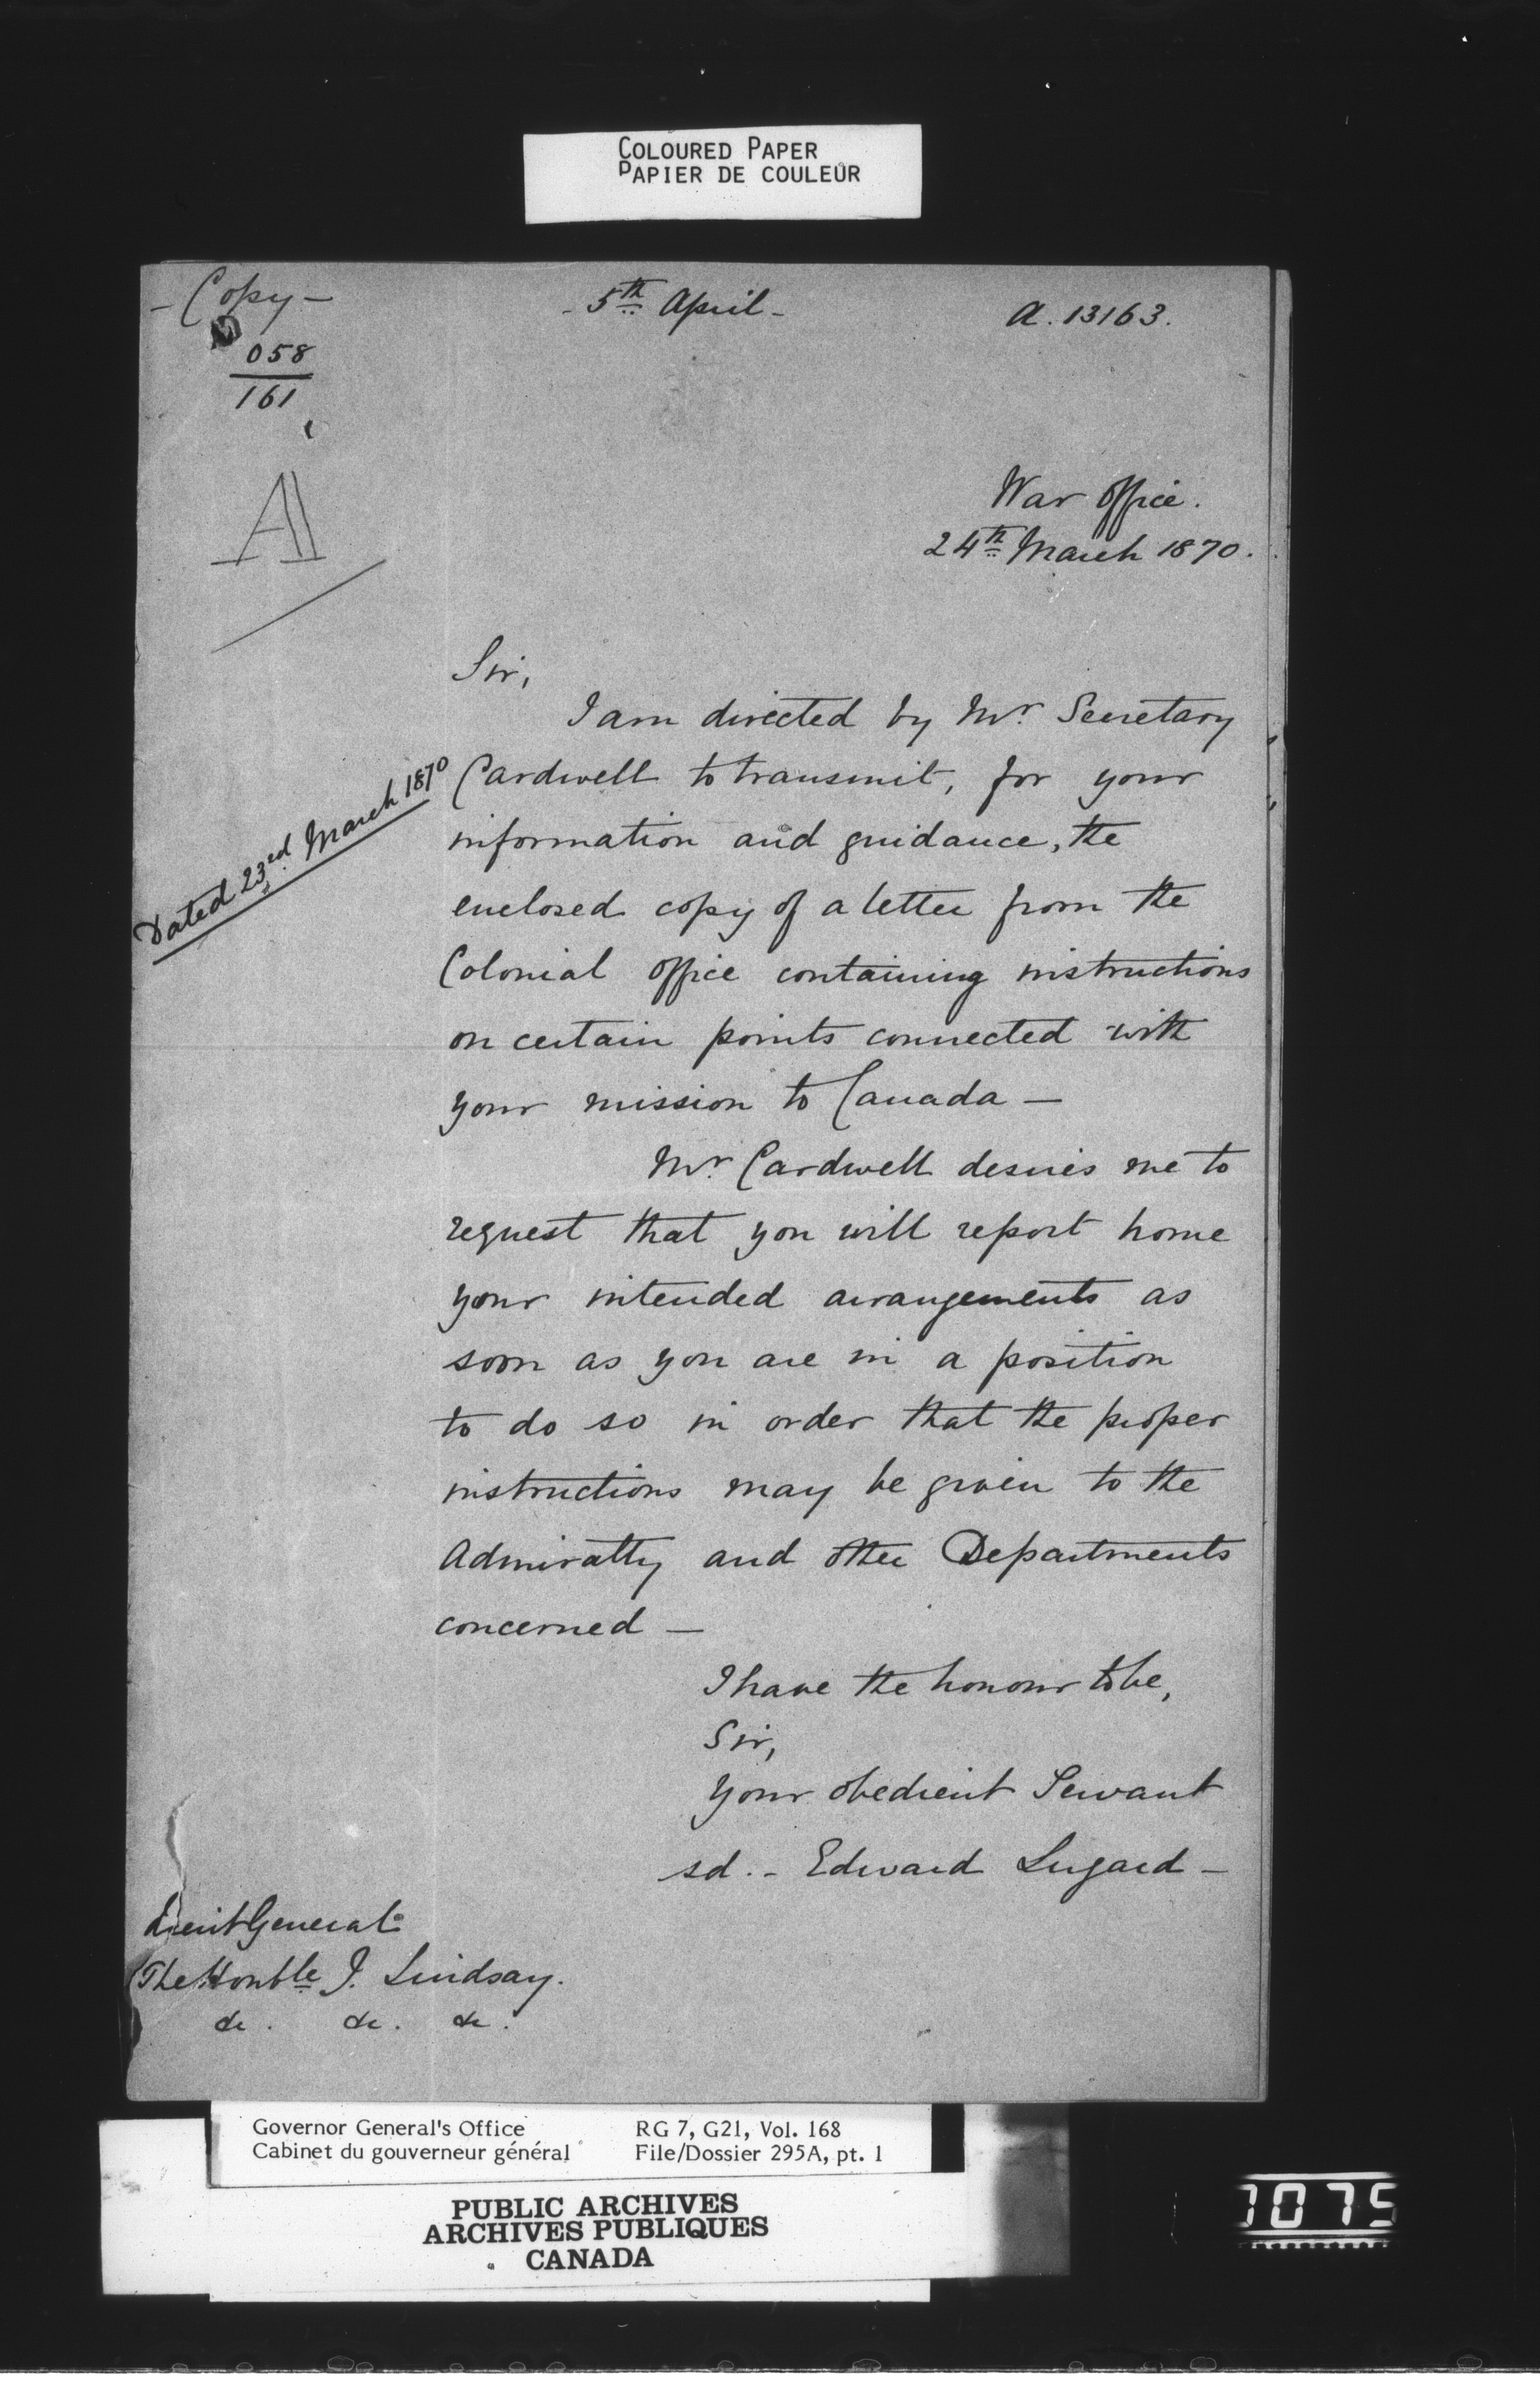 COLOURED PAPER
PAPIER DE COULEUR
- Copy -
- 5th April -
A. 13163.
058
161
A
War Office.
24th March 1870.
Sir,
I am directed by Mr. Secretary
Cardwell to transmit, for your
Dated 23rd March 1870
information and guidance, the
enclosed copy of a letter from the
Colonial Office containing instructions
on certain points connected with
your mission to Canada —
Mr. Cardwell desires me to
request that you will report home
your intended arrangements as
soon as you are in a position
to do so in order that the proper
instructions may be given to the
Admiralty and other Departments
concerned —
I have the honour to be,
Sir,
Your obedient Servant
sd. - Edward Lugard -
Lieut General
The Honble J. Lindsay.
&c. &c. &c.
Governor General's Office
Cabinet du gouverneur général
RG 7, G21, Vol. 168
File/Dossier 295A, pt. 1
PUBLIC ARCHIVES
ARCHIVES PUBLIQUES
CANADA
1075